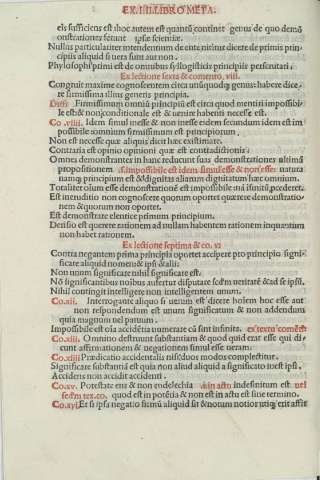 EX.IIII.LIBRO META.
eis sufficiens est:hoc autem est quantū continet genus de quo demō
onstrationes serunt ipse scientiæ.
Nullus particulariter intendentium de ente nititur dicere de primis prin
cipiis aliquid si uera sunt aut non.
Phylosophi primi est de omnibus syllogisticis principiis perscrutari.
Ex lectione sexta & comento. viii.
Congruit maxime cognoscentem circa unūquodq; genus habere dice
re firmissima illius generis principia.
Firmissimum omniū principiū est circa quod mentiri impossibi
le est:& non conditionale est:& uenire habenti necesse est.
Co .viiii. Idem simul inesse & non inesse eidem secundum idem est im
possibile :omnium firmissimum est principiorum.
Non est necesse quæ aliquis dicit hæc existimare.
Contraria est opinio opinioni quæ est contradictionis:
Omnes demonstrantes in hanc reducunt suas demonstrationes ultimā
propositionem .s.impossibile est idem simul esse & non esse: natura
nanq; principium est & dignitas aliarum dignitatum hæc omnium.
Totaliter olum esse demonstrationē est impossibile :nā ī īfinitū ꝓcederet.
Est ineruditio non cognoscere quorum oportet quærere demonstratio
nem & quorum non oportet.
Est demonstrare elentice primum principium.
Derisio est quærere rationem ad nullam habentem rationem inquantum
non habet rationem.
Ex lectione septima & co. xi
Contra negantem prima principia oportet accipere pro principio signi-
ficare aliquid nomen:& ipsi & alii:
Non unum significare nihil significare est.
Nō significantibus noībus aufertur disputare secdm ueritatē &ad se ipsū.
Nihil contingit intelligere non intelligentem unum.
Co.xii. Interrogante aliquo si uerum est dicere holem hoc esse aut
non respondendum est unum significantum & non addendum
quia magnum uel paruum.
Impossibile est oīa accidētia numerare cū sint infinita. ex textu comēti
Co.xiii. Omnino destruunt substantiam & quod quid erat esse qui di-
cunt affirmationem & negationem simul esse ueram.
Co.xiiii Prædicatio accidentalis nisi duos modos complectitur.
Significare substantiā est quia non aliud aliquid a significato inest ipsi.
Accidens non accidit accidenti.
Co.xv. Potestate ens & non endelechia in actu indefinitum est uel
secdm tex.co. quod est in potētia & non est in actu est sine termino.
Co.xvi. Et si ipsa negatio firmū aliquid sit & notum notior utiq; erit affir